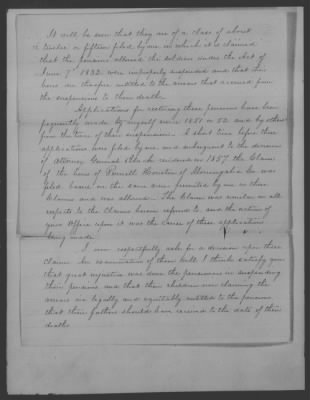 It will be seen that they are of a class of about
twelve or fifteen filed by me in which it is claimed
that the pensions allowed the soldiers under the Act of
June 7" 1832 were improperly suspended and that the
heirs are therefore entitled to the arrears that accrued from
the suspensions to their deaths.
Applications for restoring these pensions have been
frequently made by myself since 1851 or 52 and by others
from the time of their suspension. A short time before these
applications were filed by me and subsequent to the decision
of Attorney General Black rendered in 1857 the Claim
of the heirs of Purnell Houston of Monongalia Co. was
filed based on the same
Claims and was allowed. The Claim was similar in all
respects to the Claims herein referred to, and the action of
your Office upon it was the cause of these applications
being made.
I now respectfully ask for a decision upon these
claims. An examination of them will I think satisfy you
that great injustice was done the pensioners in suspending
their pensions and that their children now claiming the
arrears are legally and equitably entitled to the pensions
that their fathers should have received to the date of their
deaths.